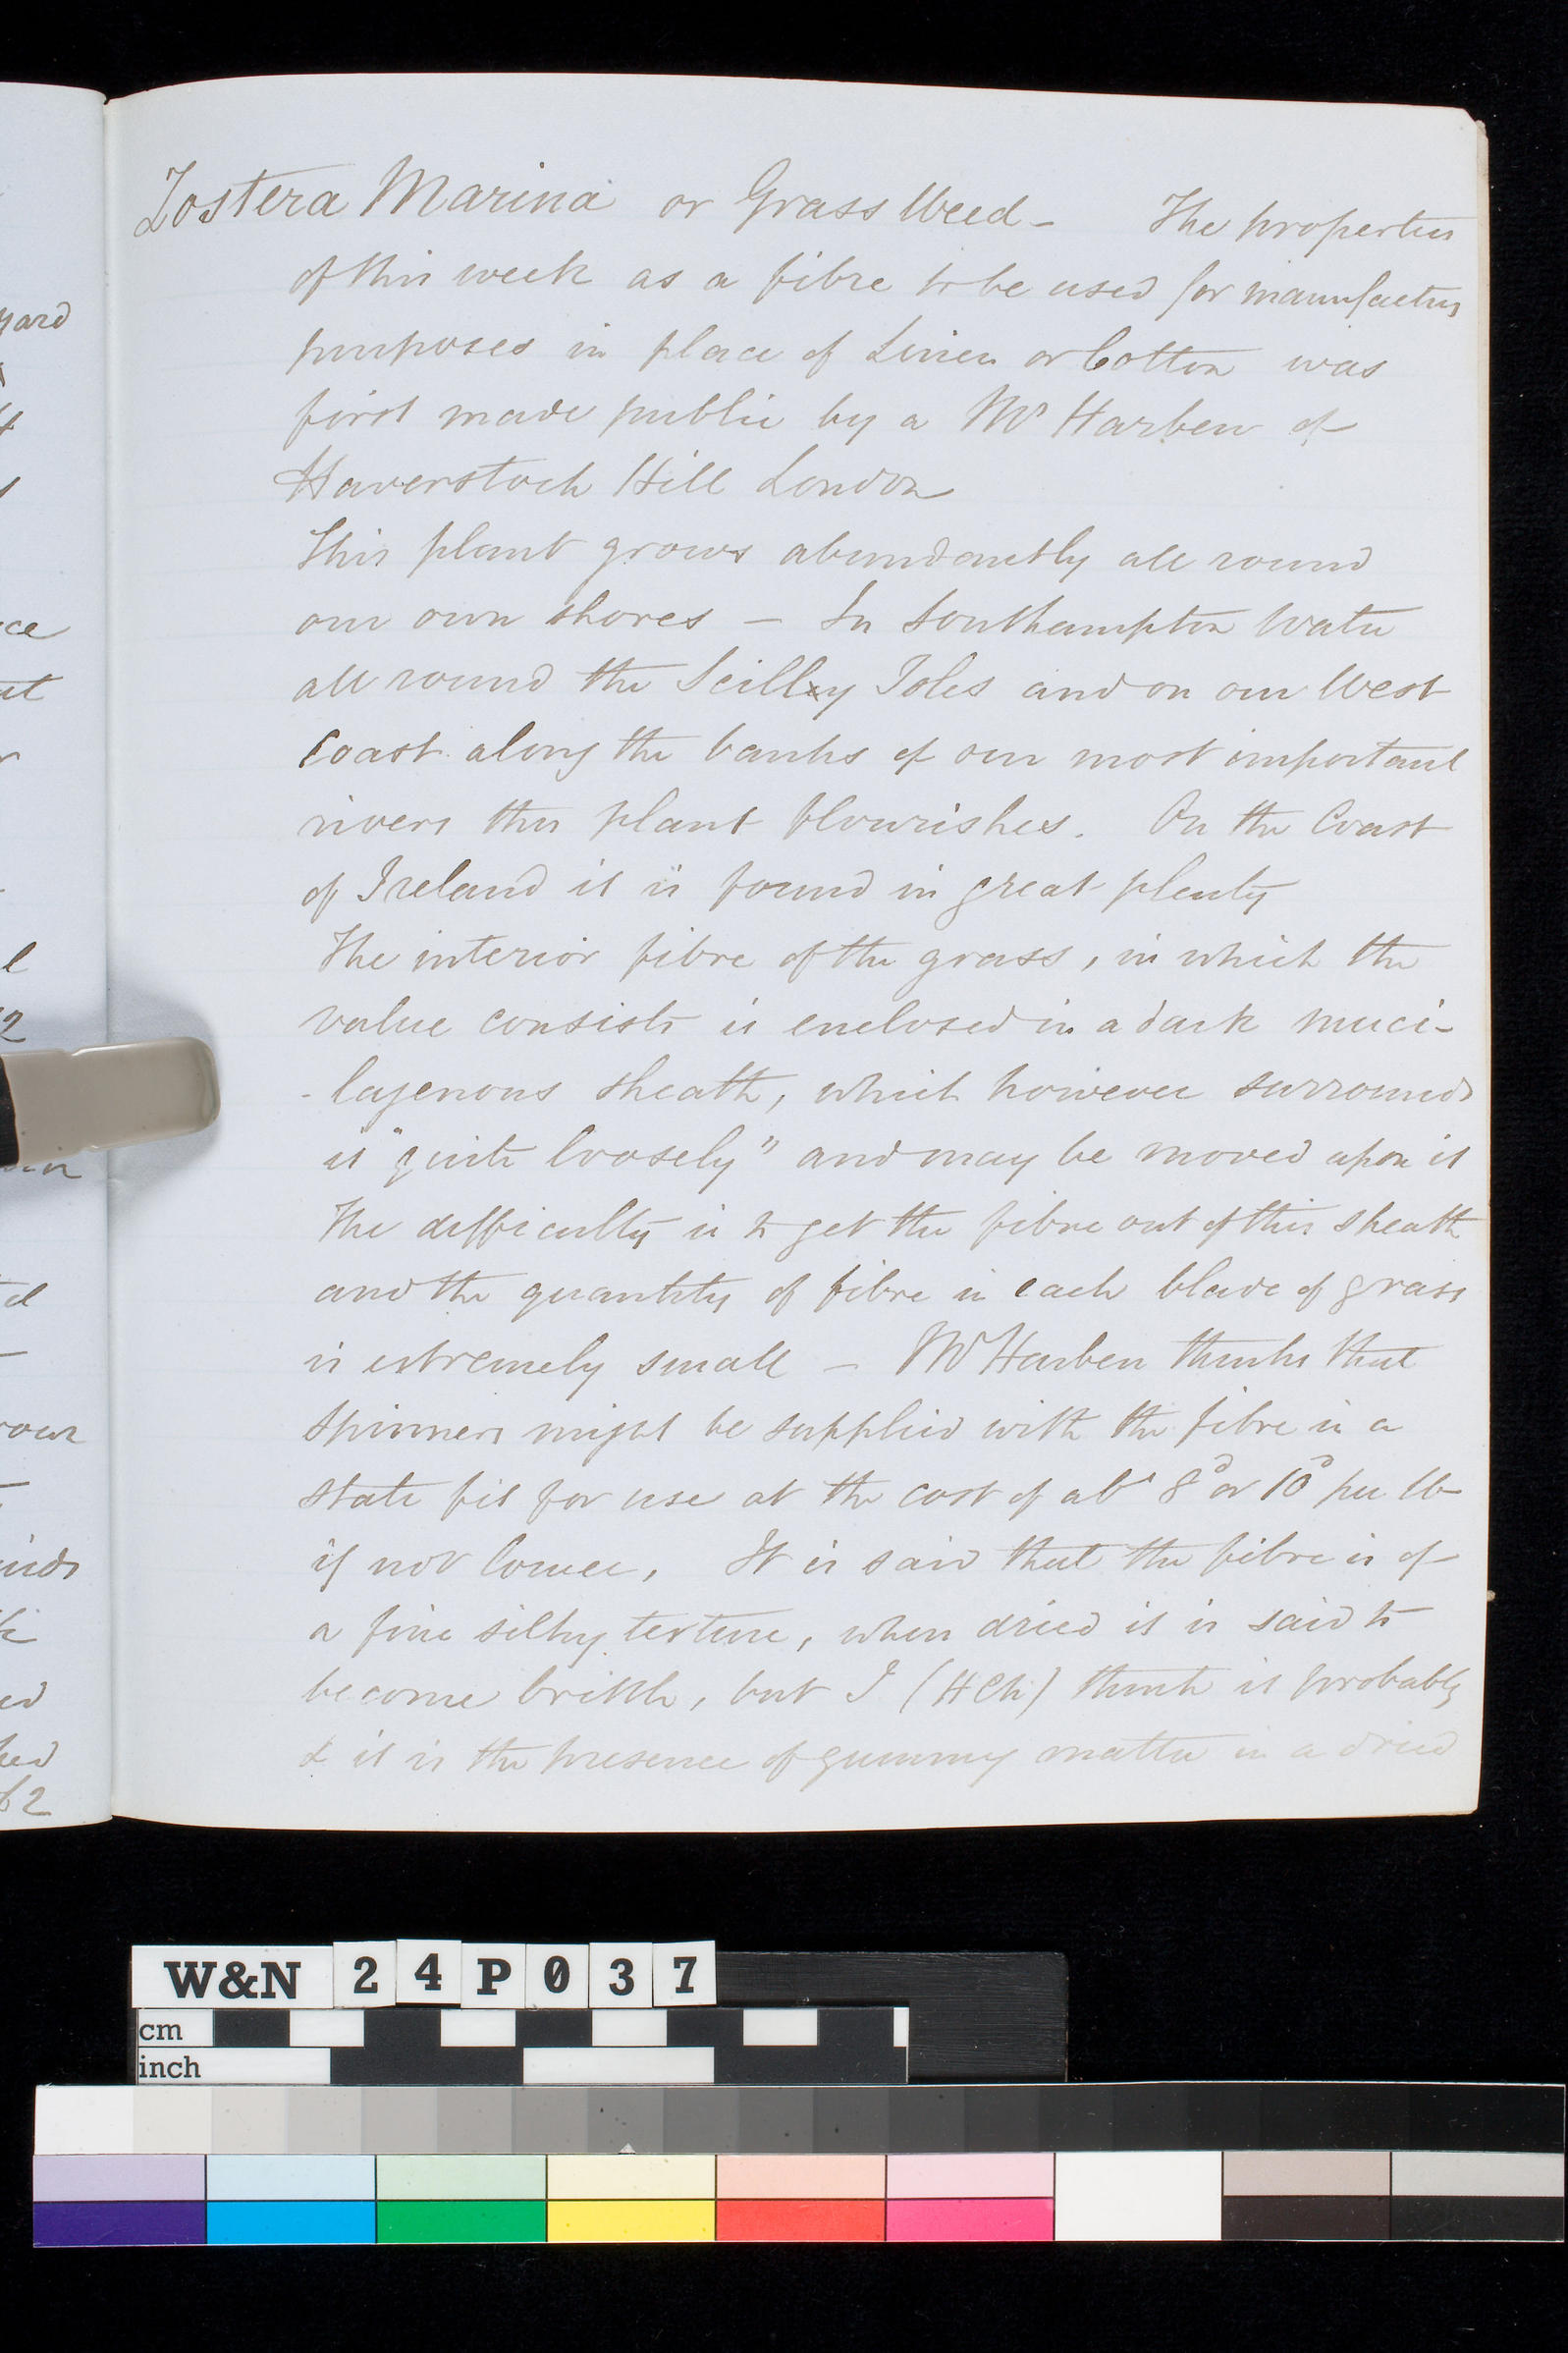 Zostera Marina or Grass Weed - The properties
of this week as a fibre to be used for manufacturg
purposes in place of Linen or Cotton was
first made public by a Mr Harben of
Haverstock Hill London
This plant grows abundantly all round
our own shores - In Southampton Water
all round the Scilly Isles and on our West
Coast along the banks of our most important
rivers this plant flourishes. On the Coast
of Ireland it is found in great plenty
The interior fibre of the grass, in which the
value consists is enclosed in a dark muci-
-lagenous sheath, which however surrounds
it "quite loosely" and may be moved upon it
The difficulty is to get the fibre out of this sheath
and the quantity of fibre in each blade of grass
is extremely small - Mr Harben thinks that
Spinners might be supplied with the fibre in a
state fit for use at the cost of abt 8d or 10d per lb
if not lower, It is said that the fibre is of
a fine silky texture, when dried it is said to
become brittle, but I (HCN) think it probably
& it is the presence of gummy matter in a dried
yard
ce
at
l
2
el
rown
inds
ed
ked
62
W&N 24P037
cm
inch